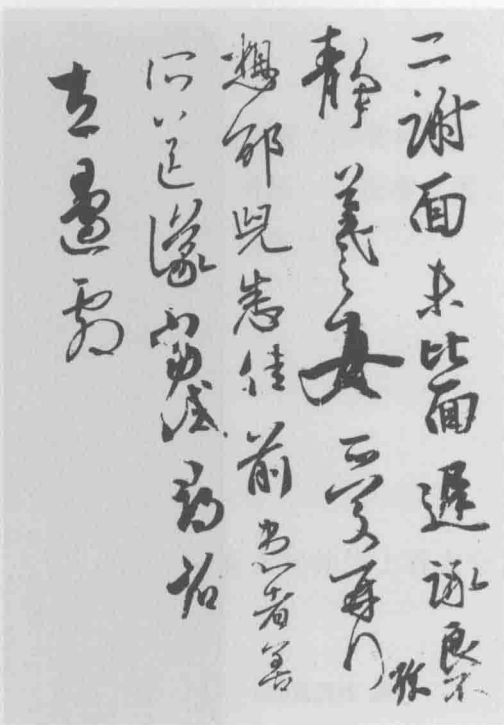 二謝面未比面遲詠良不
静羲之女愛再拜
想邰兒悉佳前患者善
所送議當試尋
左邊劇